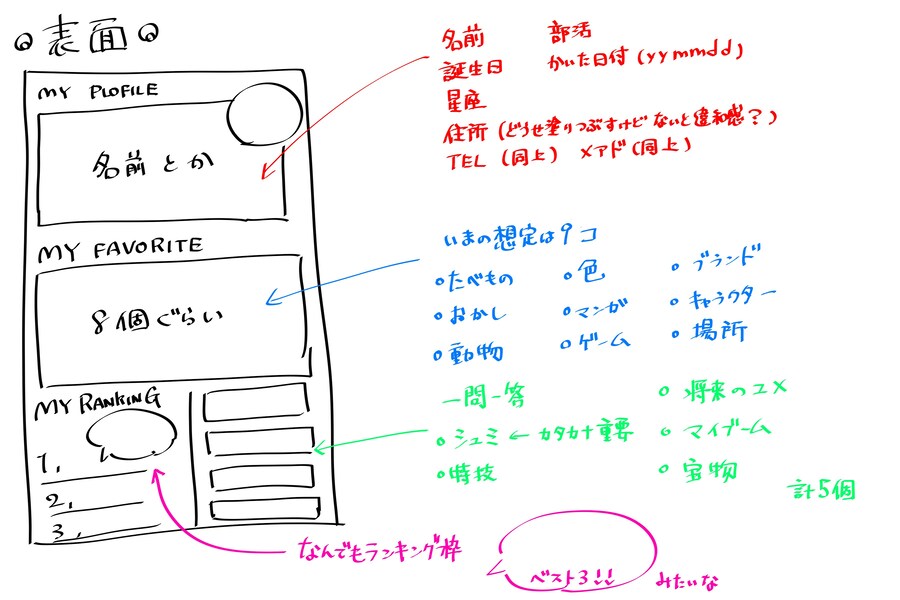 表面
MY PLOFILE
名前とか
MY FAVORITE
8個ぐらい
MY RANKING
1.
2.
3.
名前 部活
誕生日 かいた日付(yymmdd)
星座
住所(どうせ塗りつぶすけどないと違和感?)
TEL(同上) メアド(同上)
いまの想定は9コ
たべもの 色 ブランド
おかし マンガ キャラクター
動物 ゲーム 場所
一問一答 将来のユメ
シュミ ← カタカナ重要 マイブーム
特技 宝物
計5個
なんでもランキング枠
ベスト3!! みたいな